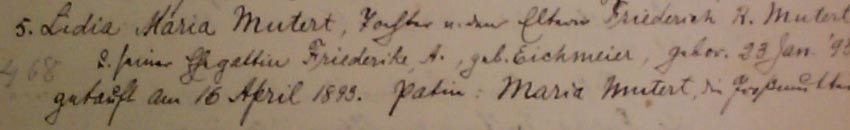 5. Lidia Maria Mutert, Tochter v. den Eltern Friederich H. Mutert
468 u. seiner Ehgattin Friederike A., geb. Eichmeier, gebor. 23 Jan. '93
getauft am 16 April 1893. Patin: Maria Mutert, die Großmutter